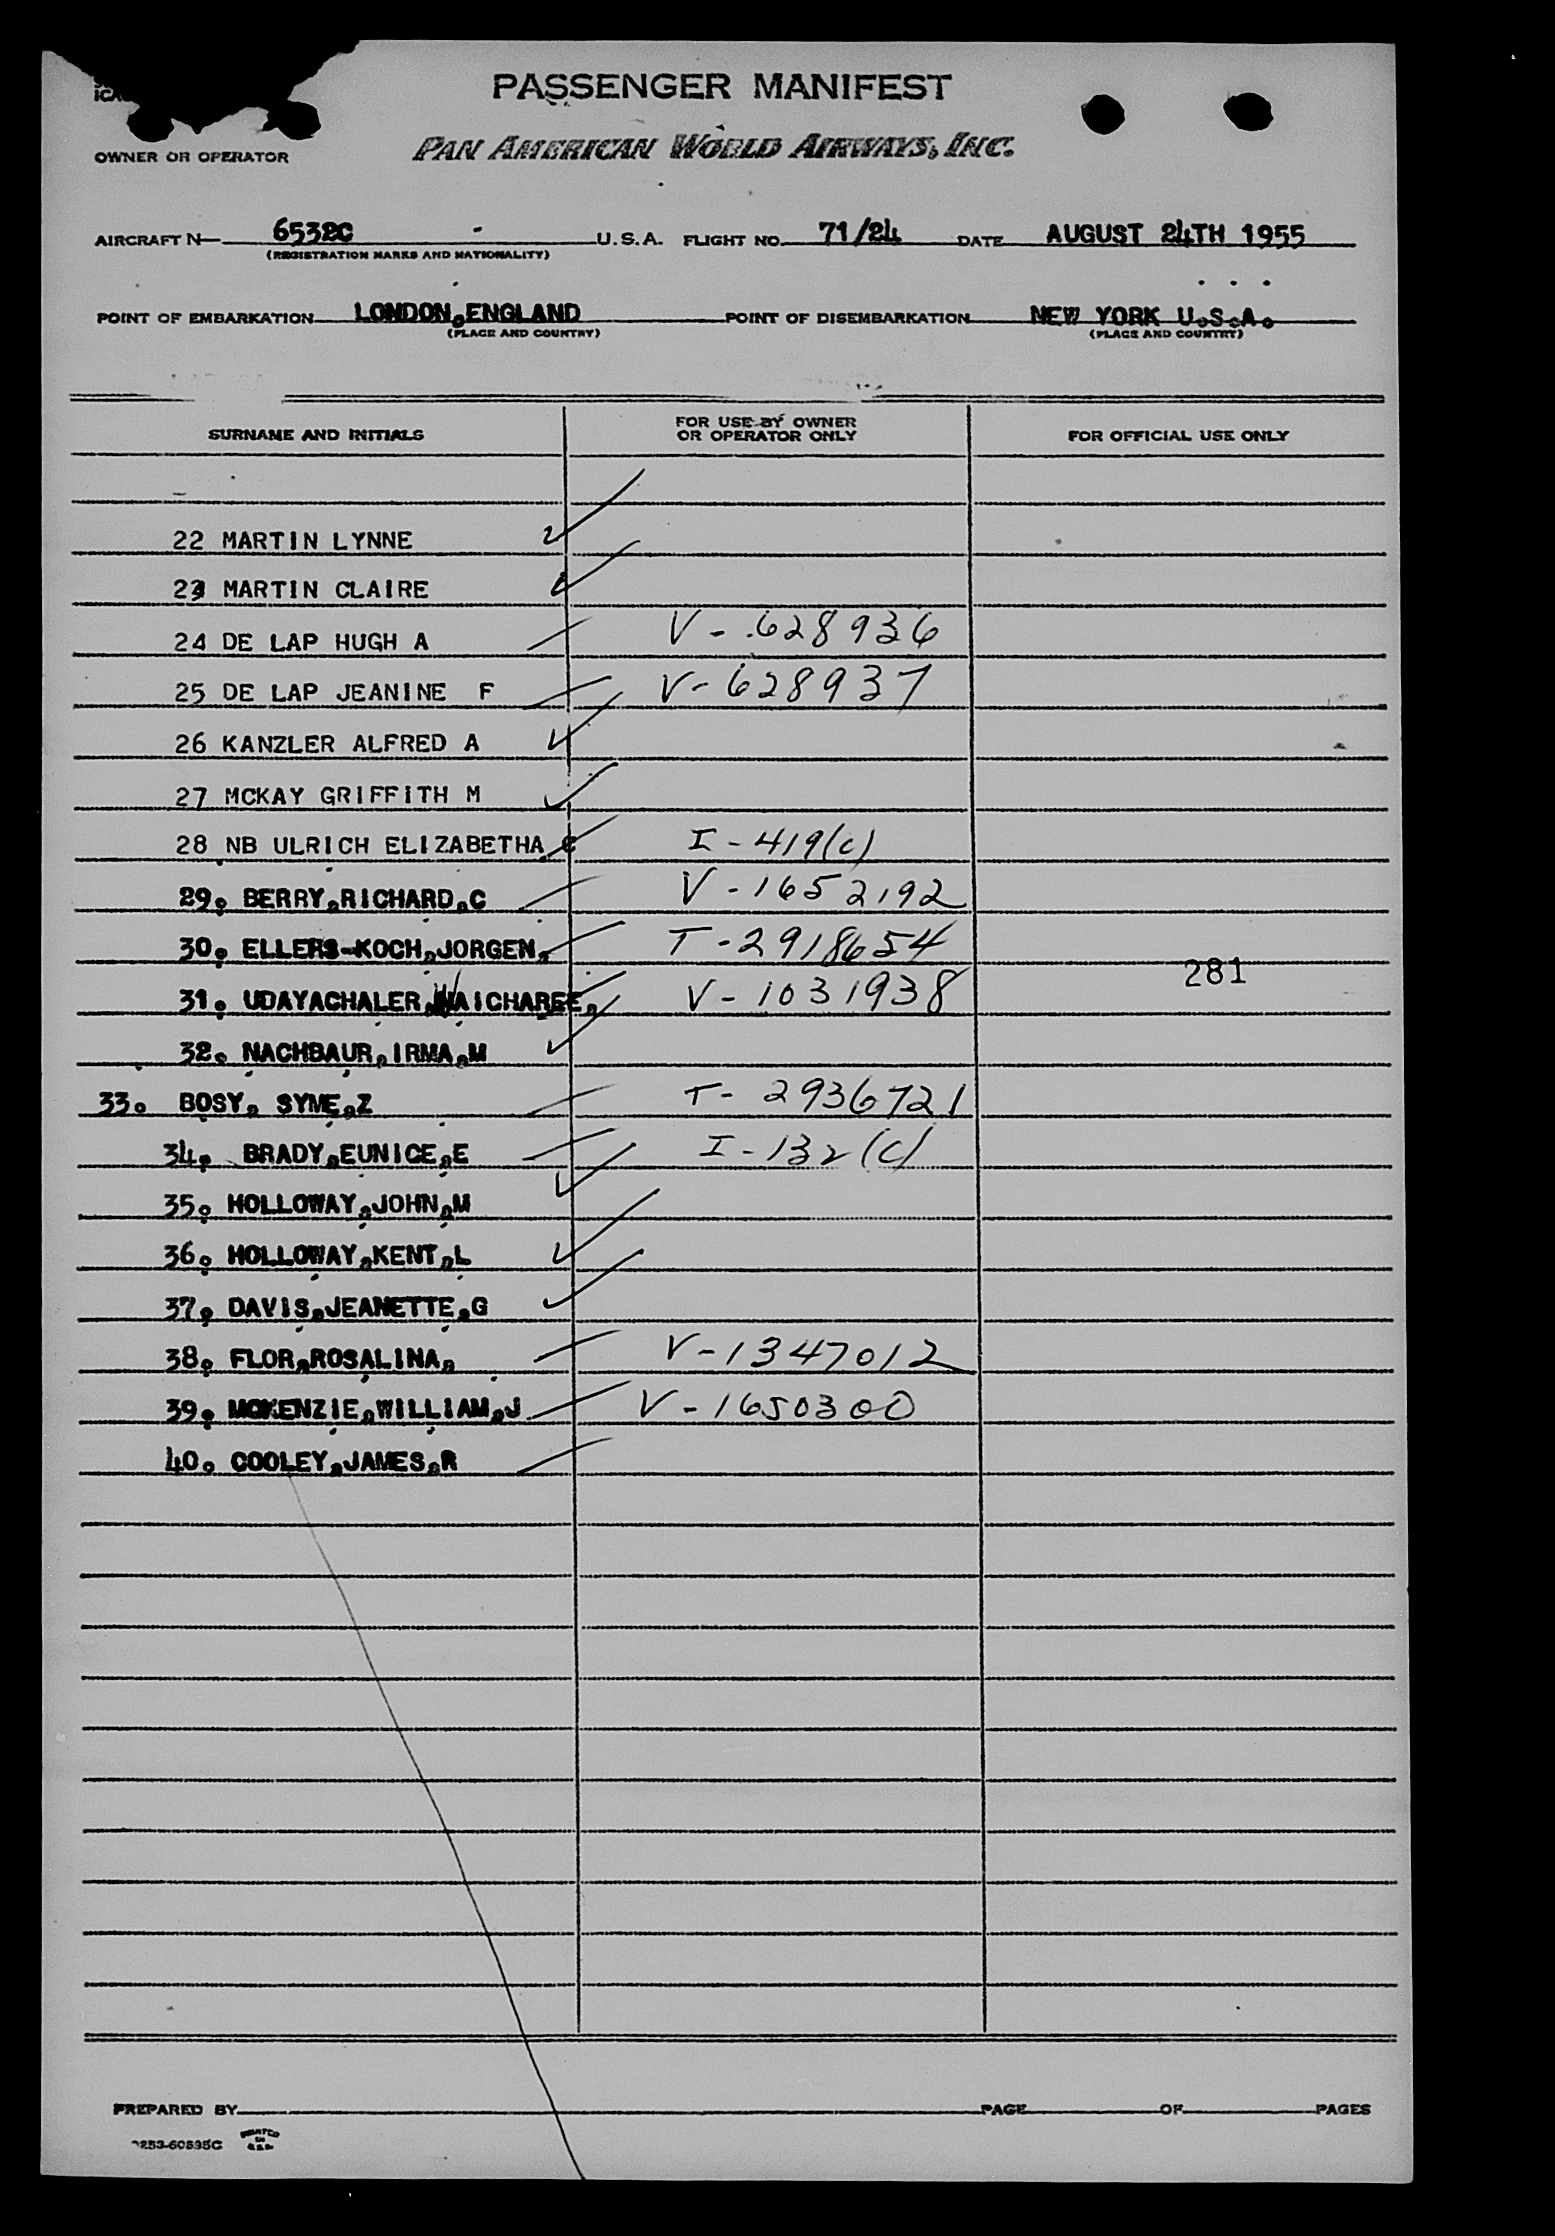 PASSENGER MANIFEST
OWNER OR OPERATOR PAN AMERICAN WORLD AIRWAYS, INC.
AIRCRAFT N 6532C U.S.A. FLIGHT NO. 71/24 DATE AUGUST 24TH 1955
(REGISTRATION MARKS AND NATIONALITY)
POINT OF EMBARKATION LONDON, ENGLAND POINT OF DISEMBARKATION NEW YORK U.S.A.
(PLACE AND COUNTRY) (PLACE AND COUNTRY)
SURNAME AND INITIALS FOR USE BY OWNER OR OPERATOR ONLY FOR OFFICIAL USE ONLY
22 MARTIN LYNNE
23 MARTIN CLAIRE
24 DE LAP HUGH A V-628936
25 DE LAP JEANINE F V-628937
26 KANZLER ALFRED A
27 MCKAY GRIFFITH M
28 NB ULRICH ELIZABETHA C I-419(C)
29. BERRY, RICHARD, C V-1652192
30. ELLERS-KOCH, JORGEN, T-2918654
31. UDAYACHALER, WAICHAREE, V-1031938
281
32. NACHBAUR, IRMA, M
33. BOSY, SYME, Z T-2936721
34. BRADY, EUNICE, E I-132(C)
35. HOLLOWAY, JOHN, M
36. HOLLOWAY, KENT, L
37. DAVIS, JEANETTE, G
38. FLOR, ROSALINA, V-1347012
39. MCKENZIE, WILLIAM, J V-1650300
40. COOLEY, JAMES, R
PREPARED BY PAGE OF PAGES
PRINTED IN U.S.A.